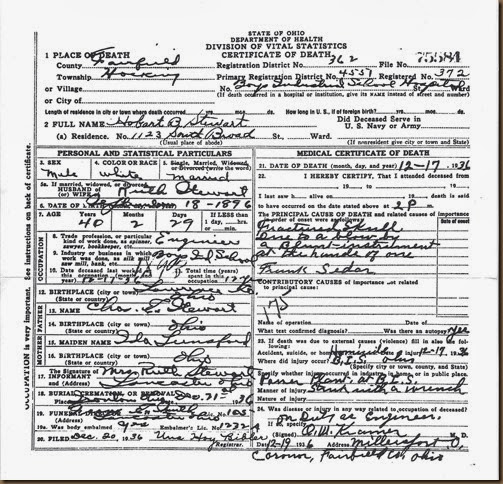 STATE OF OHIO
DEPARTMENT OF HEALTH
DIVISION OF VITAL STATISTICS
CERTIFICATE OF DEATH
1 PLACE OF DEATH
County Fairfield
Registration District No. 362
File No. 75584
Township Hocking
Primary Registration District No. 4557
Registered No. 372
or Village
No. Boys Industrial School Hospital St. Ward
(If death occurred in a hospital or institution, give its NAME instead of street and number)
or City of
Length of residence in city or town where death occurred
How long in U. S., if of foreign birth? yrs. mos. ds.
2 FULL NAME Hobart B. Stewart
Did Deceased Serve in
U. S. Navy or Army
(a) Residence. No. 1123 South Broad St., Ward.
(Usual place of abode)
(If nonresident give city or town and State)
PERSONAL AND STATISTICAL PARTICULARS
3. SEX
Male
4. COLOR OR RACE
white
5. Single, Married, Widowed,
or Divorced (write the word)
Married
5a. If married, widowed, or divorced
HUSBAND of
(or) WIFE of Ruth Stewart
6. DATE OF BIRTH 18-1896
7. AGE Years Months Days
40 2 29
If LESS than
1 day, hrs.
or min.
OCCUPATION
8. Trade, profession, or particular
kind of work done, as spinner,
sawyer, bookkeeper, etc.
Engineer
9. Industry or business in which
work was done, as silk mill,
saw mill, bank, etc.
Boys Ind School
10. Date deceased last worked at
this occupation (month and
year)
11. Total time (years)
spent in this
occupation
12. BIRTHPLACE (city or town)
(State or country) Ohio
FATHER
13. NAME Chas. E. Stewart
14. BIRTHPLACE (city or town)
(State or country) Ohio
MOTHER
15. MAIDEN NAME Ida Lunsford
16. BIRTHPLACE (city or town)
(State or country) Ohio
The Signature of
17. INFORMANT Mrs. Ruth Stewart
and (Address) Lancaster Ohio
18. BURIAL, CREMATION, OR REMOVAL
19. FUNERAL
19a. Was body embalmed yes Embalmer's Lic. No. 1232 A
20. FILED Dec. 20, 1936
Registrar.
MEDICAL CERTIFICATE OF DEATH
21. DATE OF DEATH (month, day, and year) 12-17-1936
22. I HEREBY CERTIFY, That I attended deceased from
I last saw h alive on death is said
to have occurred on the date stated above at 2 P m.
The PRINCIPAL CAUSE OF DEATH and related causes of importance
Date of onset
Fractured Skull
Due to a blow of
a Blunt instrument
at the hands of one
Frank Sedar
CONTRIBUTORY CAUSES of importance not related
to principal cause:
175
Name of operation Date of
What test confirmed diagnosis? Was there an autopsy? Yes
23. If death was due to external causes (violence) fill in also the following:
Accident, suicide, or homicide? Homicide 12-17 1936
Where did injury occur? B.I.S. Ohio
(Specify city or town, county, and State)
Specify whether injury occurred in industry, in home, or in public place.
Power Plant, at B.I.S.
Manner of injury Struck with a wrench
Nature of injury
24. Was disease or injury in any way related to occupation of deceased?
on Duty as Engineer.
If so, specify
(Signed) M. D.
Date 12-19 1936 Address Millersport O.
Coroner, Fairfield Co. Ohio
OCCUPATION is very important. See instructions on back of certificate.